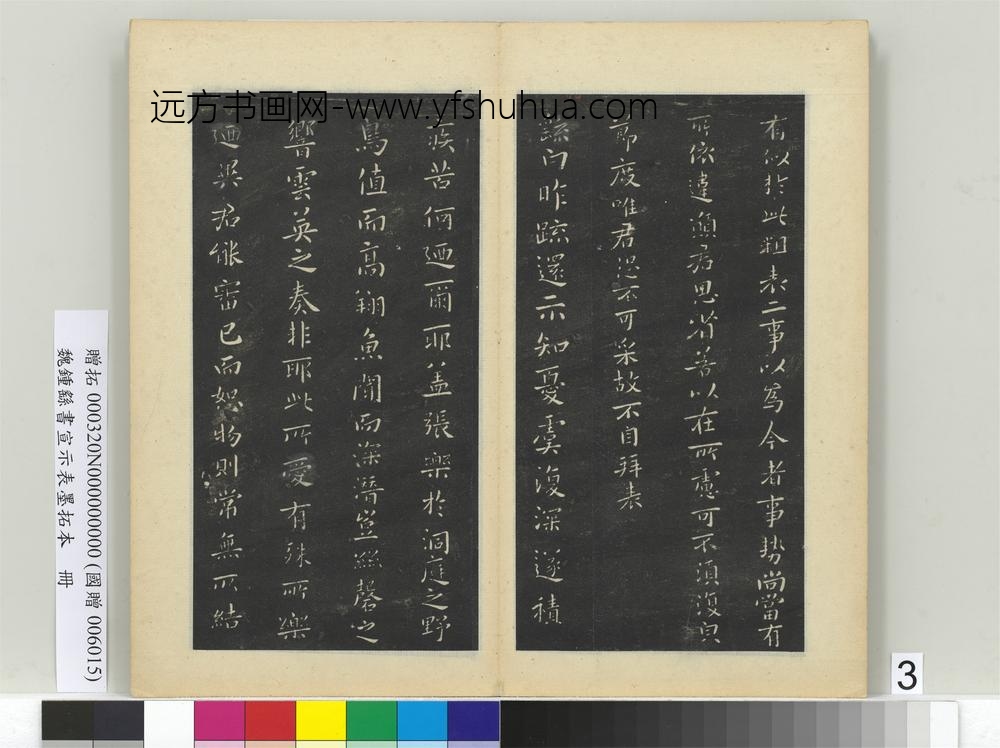 远方书画网-www.yfshuhua.com
有似於此粗表二事以為今者事勢尚當有
所依違願君思省若以在所慮可不須復皃
節度唯君恐不可采故不自拜表
繇白昨疏還示知憂虞復深遂積
疾苦何迺爾耶蓋張樂於洞庭之野
鳥值而高翔魚聞而深潛豈絲磬之
響雲英之奏非耶此所愛有殊所樂
迺異君能審己而恕物則常無所結
贈拓 000320N000000000 (國贈 006015)
魏鍾繇書宣示表墨拓本 冊
3